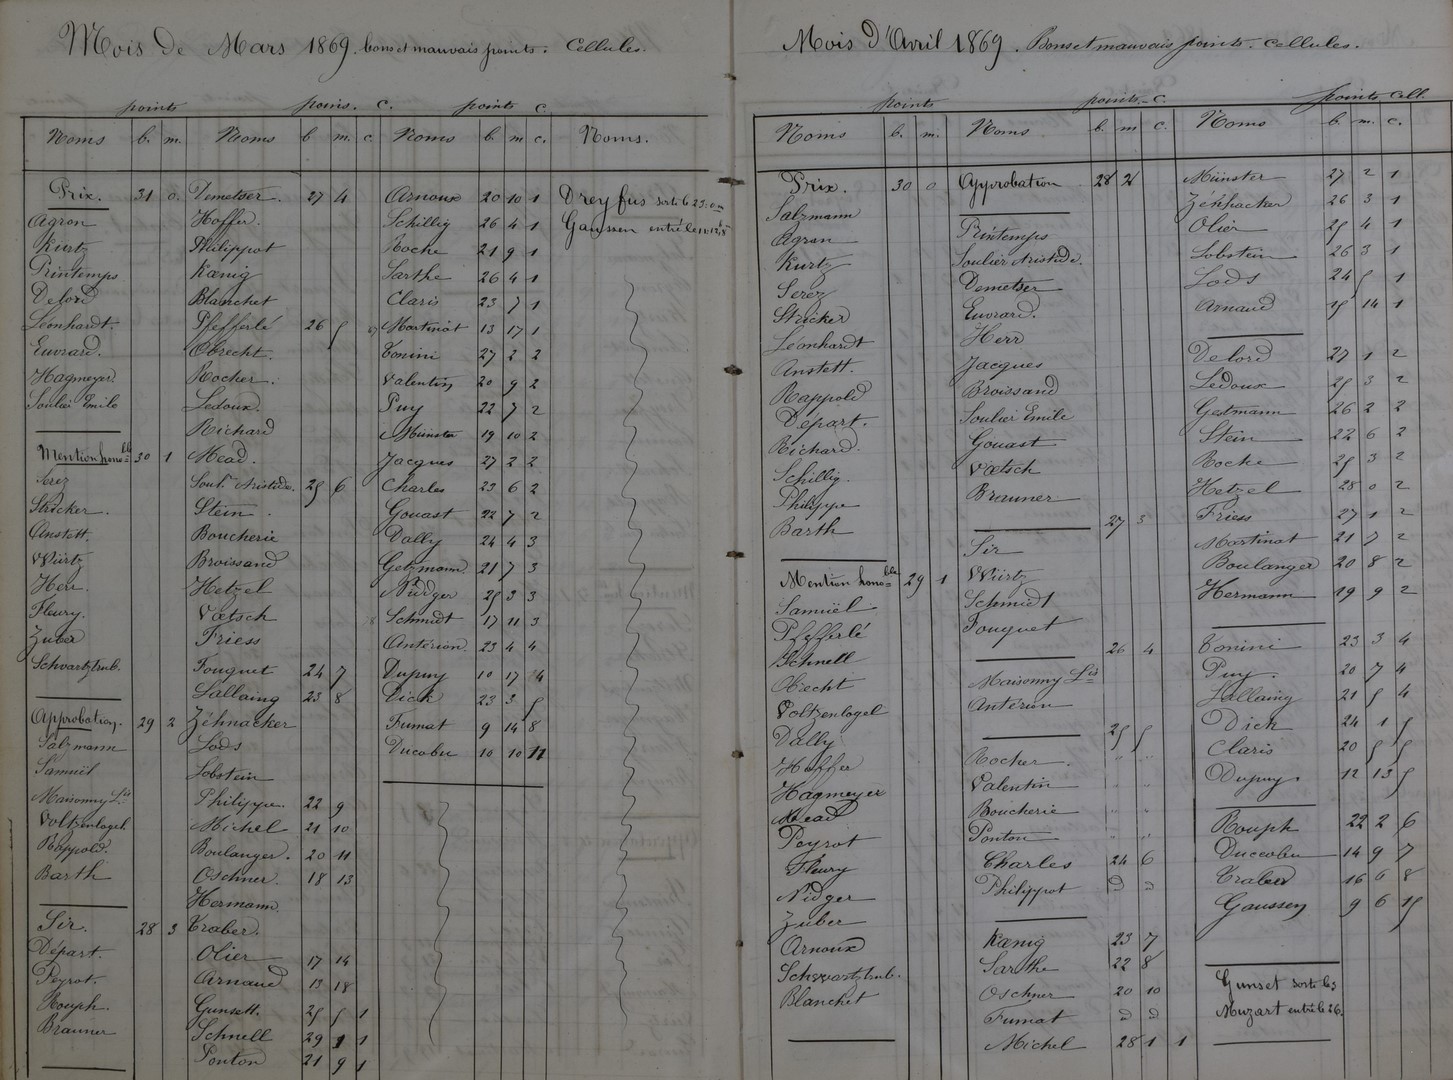 Mois de Mars 1869. bons et mauvais points. Cellules.
points points. c. points c.
Noms b. m. Noms b. m. c. Noms b. m c. Noms.
Prix. 31 0
Agron
Kurtz
Printemps
Delord
Léonhardt.
Euvrard.
Hagmeyer.
Soulier Emile
Mention honoble 30 1
Serez
Stricker.
Anstett.
Würtz
Herr.
Fleury.
Zuber
Schvartztrub.
Approbation. 29 2
Salzmann
Samuël
Maisonny Lis
Voltzenlogel.
Rappold.
Barth
Sir. 28 3
Départ.
Peyrot.
Rouph.
Brauner
Demetser. 27 4
Hoffer.
Philippot
Kœnig
Blanchet
Pfefferlé 26 5
Obrecht.
Rocher.
Ledoux.
Richard
Mead.
Soul.r Aristide. 25 6
Stein.
Boucherie
Broissand
Hetzel
Vœtsch
Friess
Fouquet 24 7
Lallaing 23 8
Zéhnacker
Lods
Lobstein
Philippe. 22 9
Michel 21 10
Boulanger. 20 11
Oschner. 18 13
Hermann.
Traber.
Olier 17 14
Arnaud 13 18
Gunsett. 25 5 1
Schnell 29 1 1
Ponton 21 9 1
Arnoux 20 10 1
Schillig 26 4 1
Roche 21 9 1
Sarthe 26 4 1
Claris 23 7 1
Martinot 13 17 1
Tonini 27 2 2
Valentin 20 9 2
Puy 22 7 2
Münster 19 10 2
Jacques 27 2 2
Charles 23 6 2
Gouast 22 7 2
Dally 24 4 3
Getzmann. 21 7 3
Nidger 25 3 3
Schmidt 17 11 3
Antérion. 23 4 4
Dupuy 10 17 4
Dick 23 3 5
Fumat 9 14 8
Ducobu 10 10 11
Dreyfus sorti le 23
Gaussen entré le
Mois d'Avril 1869. Bons et mauvais points. cellules.
points points. c. points Cell.
Noms b. m. Noms b. m c. Noms b. m. c.
Prix. 30 0
Salzmann
Agron
Kurtz
Serez
Stricker
Léonhardt
Anstett.
Rappold
Départ.
Richard.
Schillig.
Philippe
Barth
Mention honoble 29 1
Samuël
Pfefferlé
Schnell
Obrecht
Voltzenlogel
Dally
Hoffer
Hagmeyer
Mead
Peyrot
Fleury
Nidger
Zuber
Arnoux
Schvartztrub.
Blanchet
Approbation 28 2
Printemps
Soulier Aristide.
Demetser
Euvrard.
Herr
Jacques
Broissand
Soulier Emile
Gouast
Vœtsch
Brauner
27 3
Sir
Würtz
Schmidt
Fouquet
26 4
Maisonny Lis
Antérion
25 5
Rocher. " "
Valentin " "
Boucherie " "
Ponton " "
Charles 24 6
Philippot d d
Kœnig 23 7
Sarthe 22 8
Oschner 20 10
Fumat d d
Michel 28 1 1
Münster 27 2 1
Zéhnacker 26 3 1
Olier 25 4 1
Lobstein 26 3 1
Lods 24 5 1
Arnaud 15 14 1
Delord 27 1 2
Ledoux 25 3 2
Getzmann 26 2 2
Stein 22 6 2
Roche 25 3 2
Hetzel 28 0 2
Friess 27 1 2
Martinot 21 7 2
Boulanger 20 8 2
Hermann 19 9 2
Tonini 23 3 4
Puy. 20 7 4
Lallaing 21 5 4
Dick 24 1 5
Claris 20 5 5
Dupuy. 12 13 5
Rouph 22 2 6
Duccobu 14 9 7
Traber 16 6 8
Gaussen 9 6 15
Gunset sorti le 3
Muzart entré le 26.